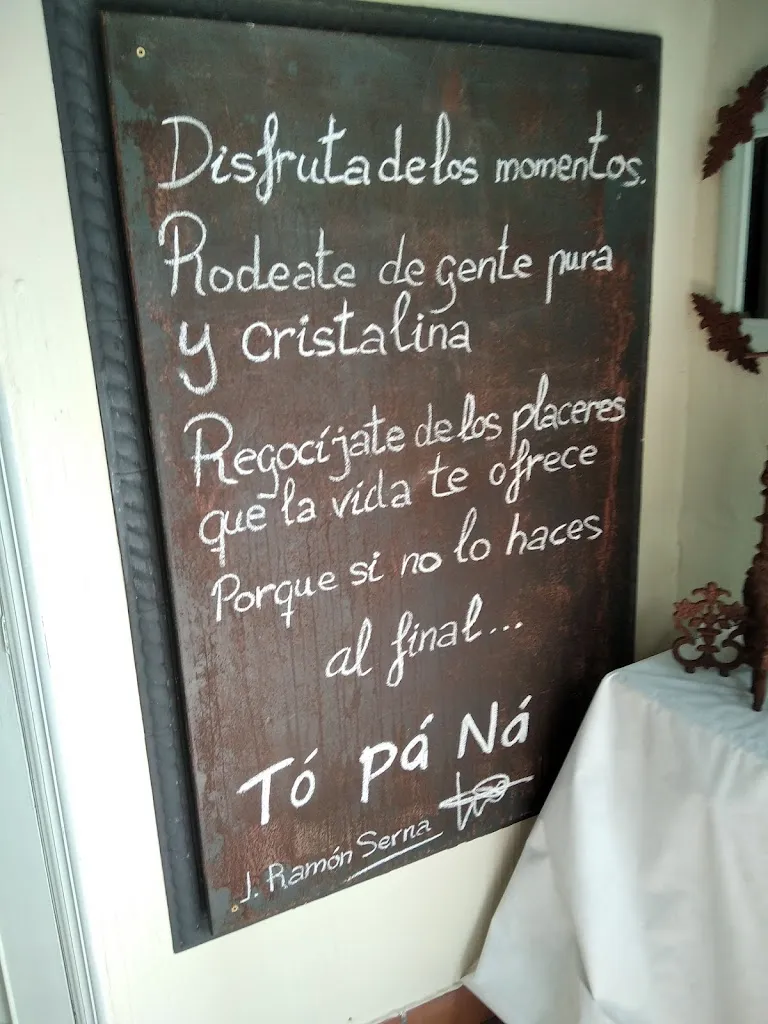 Disfruta de los momentos.
Rodeate de gente pura
y cristalina
Regocíjate de los placeres
que la vida te ofrece
Porque si no lo haces
al final...
Tó Pá Ná
J. Ramón Serna